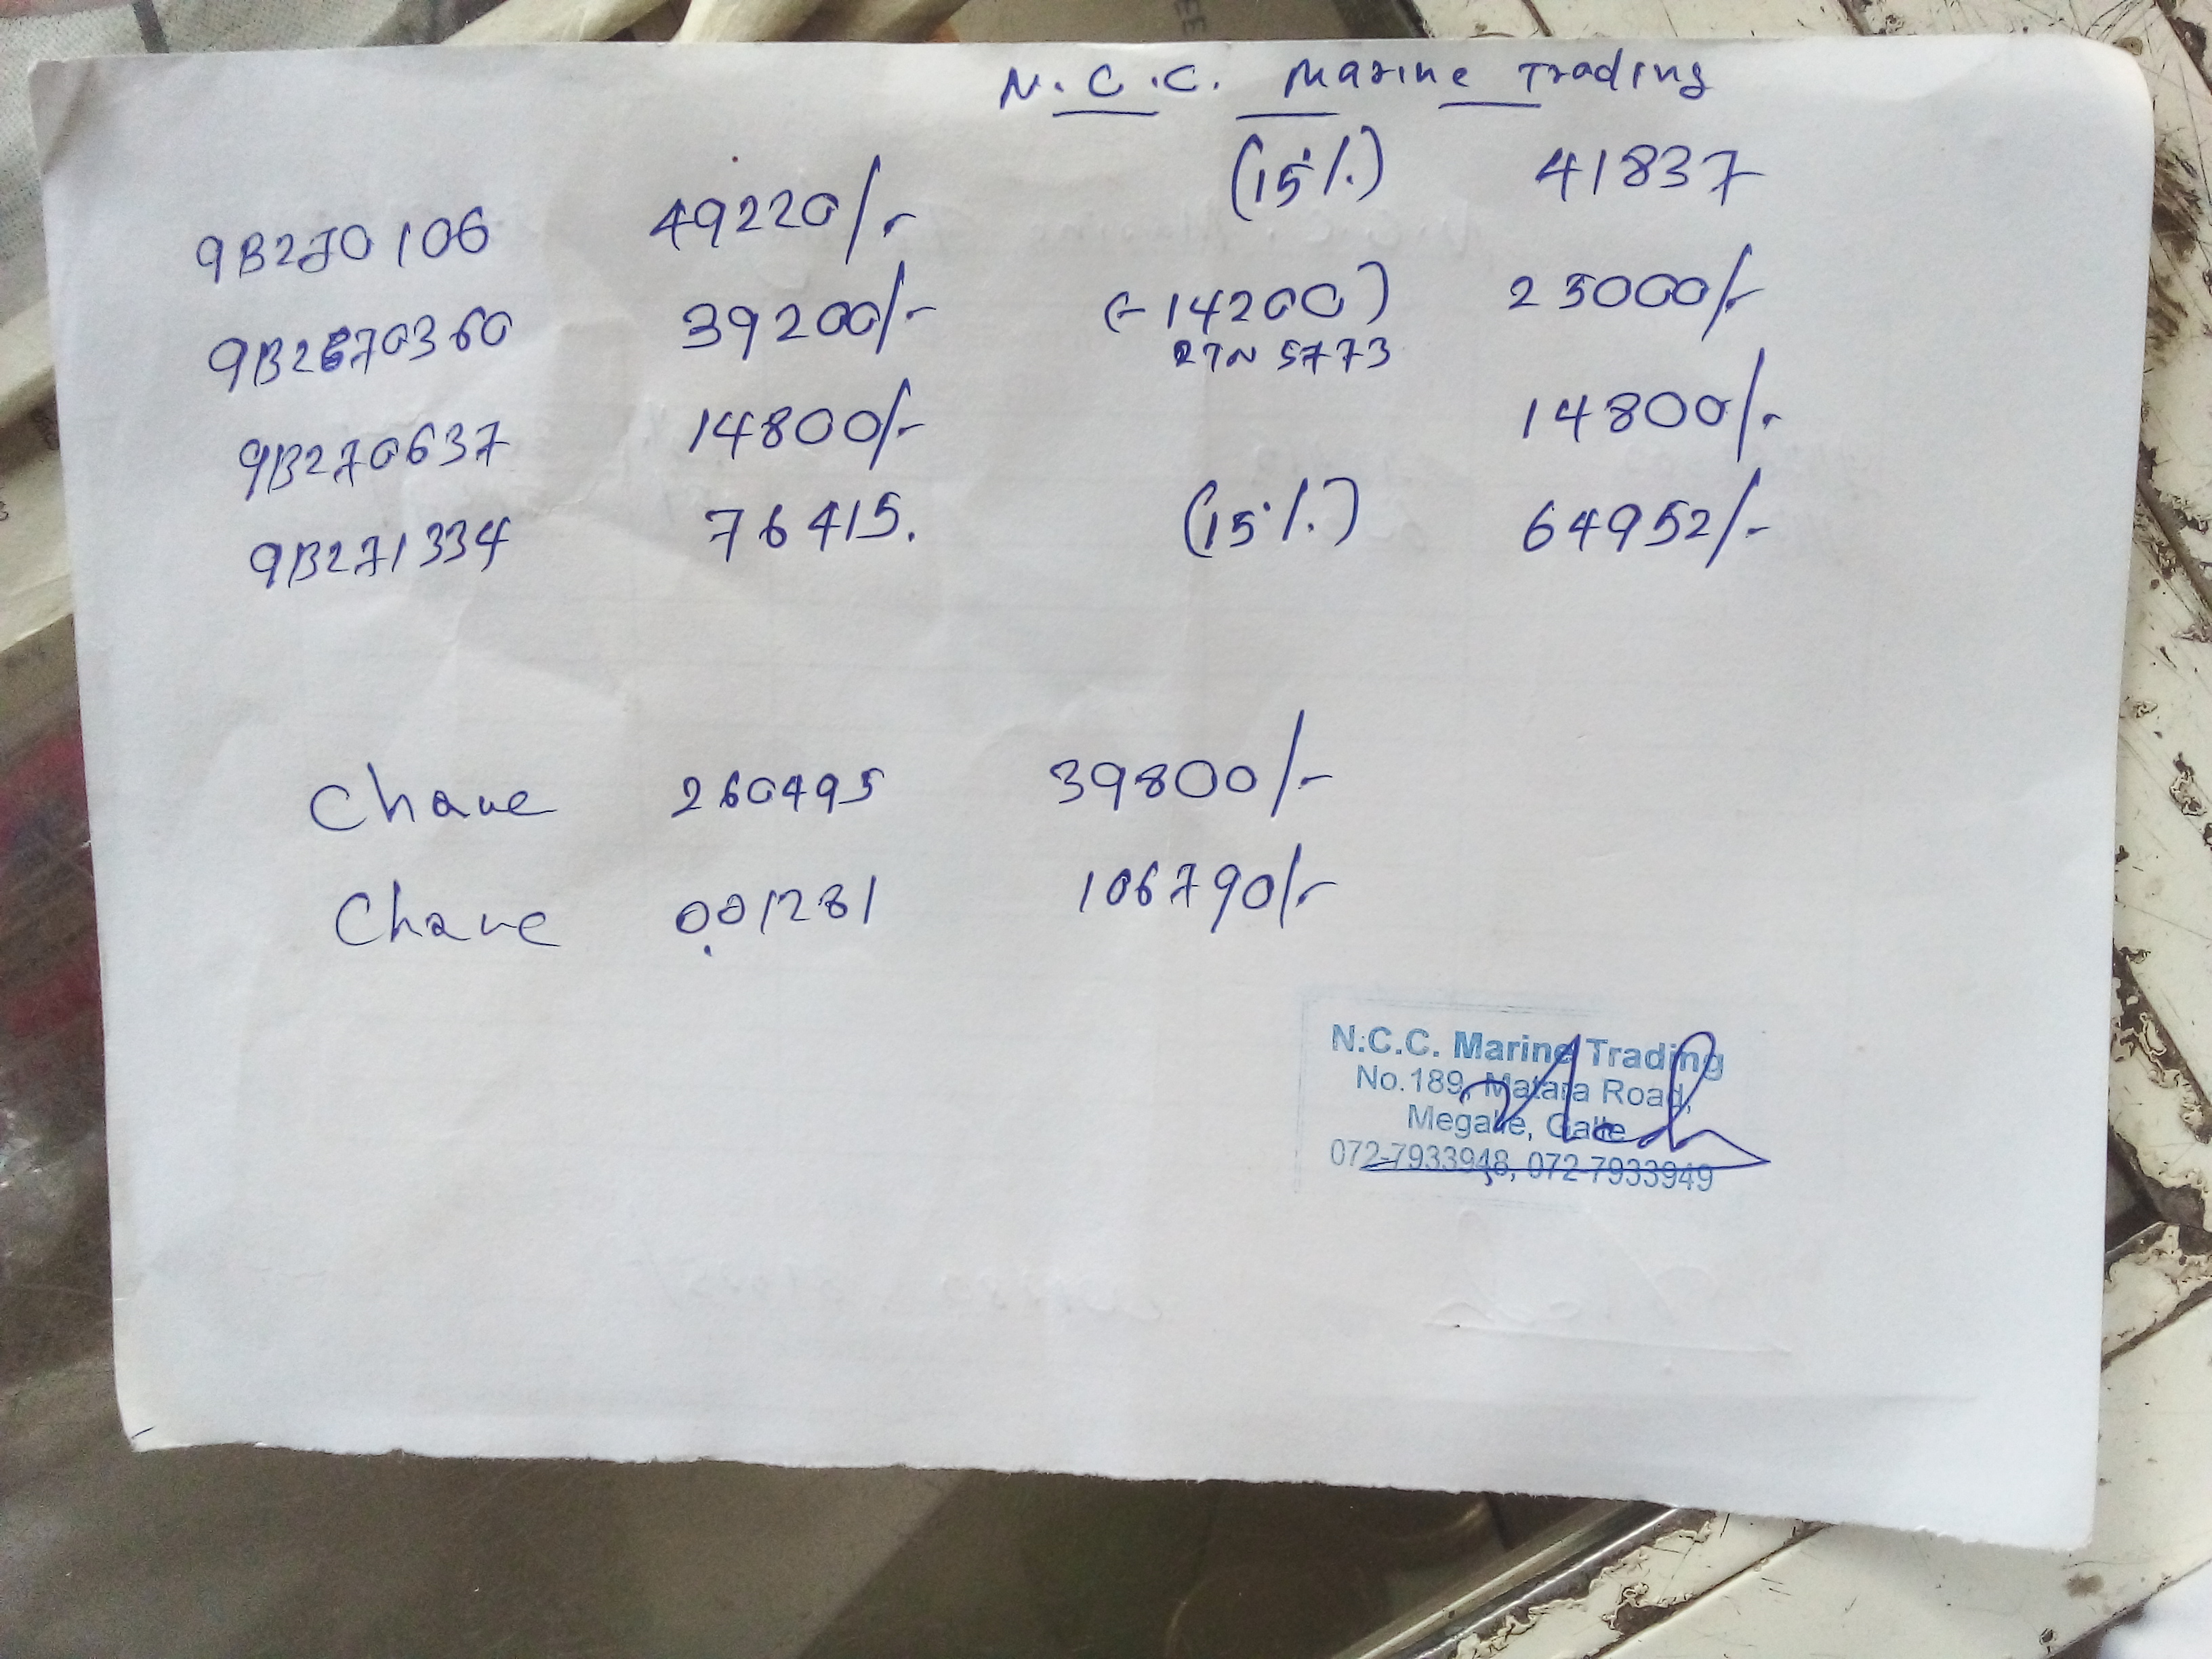 N.C.C. Marine Trading
9B270106 49220/- (15%) 41837
9B2670360 39200/- (-14200) 25000/-
RTN 5773
9B270637 14800/- 14800/-
9B271334 76415. (15%) 64952/-
Chaue 260495 39800/-
Chaue 001281 106790/-
N.C.C. Marine Trading
No.189, Matara Road,
Megalle, Galle
072-7933948, 072-7933949